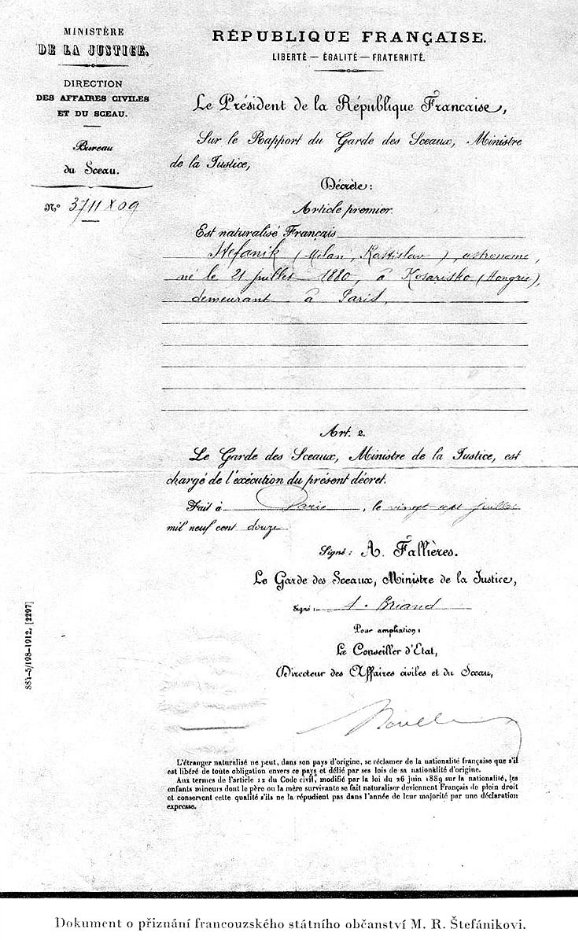 MINISTÈRE
DE LA JUSTICE.
DIRECTION
DES AFFAIRES CIVILES
ET DU SCEAU.
Bureau
du Sceau.
N° 3711 X 09
RÉPUBLIQUE FRANÇAISE.
LIBERTÉ — ÉGALITÉ — FRATERNITÉ.
Le Président de la République Francaise,
Sur le Rapport du Garde des Sceaux, Ministre
de la Justice,
Décrète:
Article premier.
Est naturalisé Français
Stefanik (Milan, Rastislaw), astronome,
né le 21 juillet 1880, à Kosarisko (Hongrie),
demeurant à Paris.
Art. 2.
Le Garde des Sceaux, Ministre de la Justice, est
chargé de l'exécution du présent décret.
Fait à Paris, le vingt sept juillet
mil neuf cent douze
Signé: A. Fallières.
Le Garde des Sceaux, Ministre de la Justice,
Signé: A. Briand
Pour ampliation:
Le Conseiller d'Etat,
Directeur des Affaires civiles et du Sceau,
L'étranger naturalisé ne peut, dans son pays d'origine, se réclamer de la nationalité française que s'il
est libéré de toute obligation envers ce pays et délié par ses lois de sa nationalité d'origine.
Aux termes de l'article 12 du Code civil, modifié par la loi du 26 juin 1889 sur la nationalité, les
enfants mineurs dont le père ou la mère survivante se fait naturaliser deviennent Français de plein droit
et conservent cette qualité s'ils ne la répudient pas dans l'année de leur majorité par une déclaration
expresse.
881-5/198-1912. [2297]
Dokument o přiznání francouzského státního občanství M. R. Štefánikovi.